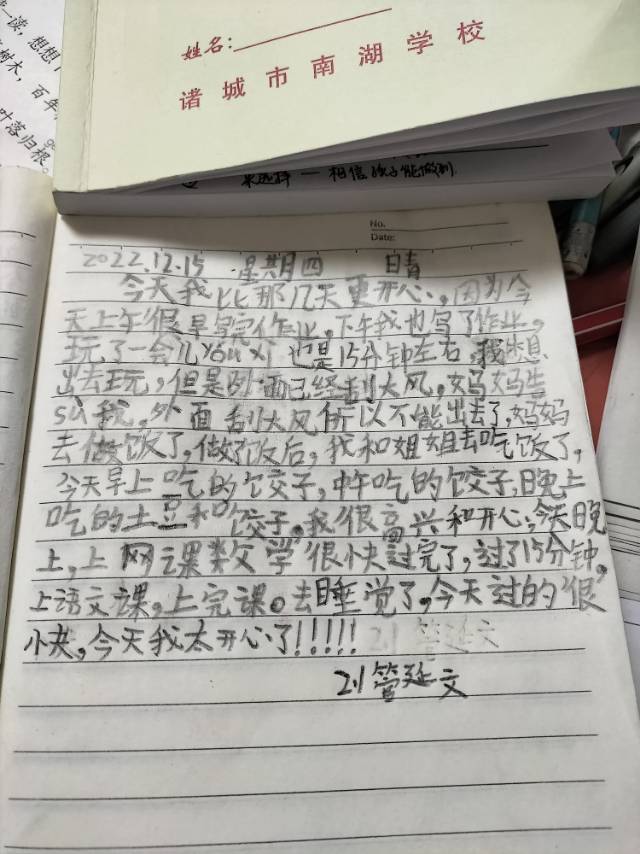 一读，想想
树木，百年
叶落归根。
姓名：
诸城市南湖学校
相信孩子能做到
No.
Date:
2022.12.15 星期四 晴
今天我比那几天更开心，因为今
天上午很早写完作业，下午我也写了作业，
玩了一会儿youxi也是15分钟左右，我想
出去玩，但是外面已经刮大风，妈妈告
su我，外面刮大风所以不能出去了，妈妈
去做饭了，做了饭后，我和姐姐去吃饭了，
今天早上吃的饺子，中午吃的饺子，晚上
吃的土豆和饺子，我很高兴和开心，今天晚
上，上网课数学很快过完了，过了15分钟，
上语文课，上完课。去睡觉了，今天过的很
快，今天我太开心了！！！！！ 2.1 管延文
2.1 管延文